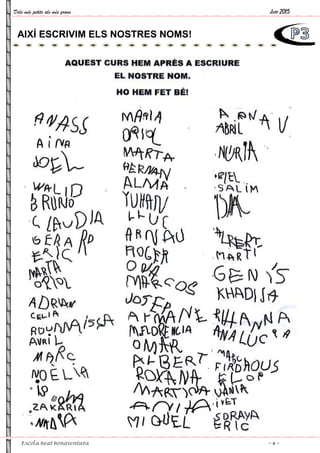 Dels més petits als més grans
Juny 2015
AIXÍ ESCRIVIM ELS NOSTRES NOMS!
P3
AQUEST CURS HEM APRÈS A ESCRIURE
EL NOSTRE NOM.
HO HEM FET BÉ!
ANASS
AINA
JOEL
WALID
BRUNO
CLAUDIA
GERARD
ERIC
MARTA
ORIOL
ADRIAN
CELIA
ROUMAISSA
AVRIL
MARC
NOELIA
ZAKARIA
NADIA
MARIA
ORIOL
MARTA
HERNAN
ALMA
YUHAN
LLUC
ARNAU
ROGER
MARCOS
JOSEP
M.FLORENCIA
OMAR
ALBERT
ROXANA
MARTINA
MIQUEL
ARNAU
ABRIL
NURIA
BIEL
SALIM
ALBERT
MARTI
GENIS
KHADIJA
RIHANNA
ANA LUCIA
MARC
FIRDAOUS
VANIA
IVET
SORAYA
ERIC
Escola Beat Bonaventura
- 4 -